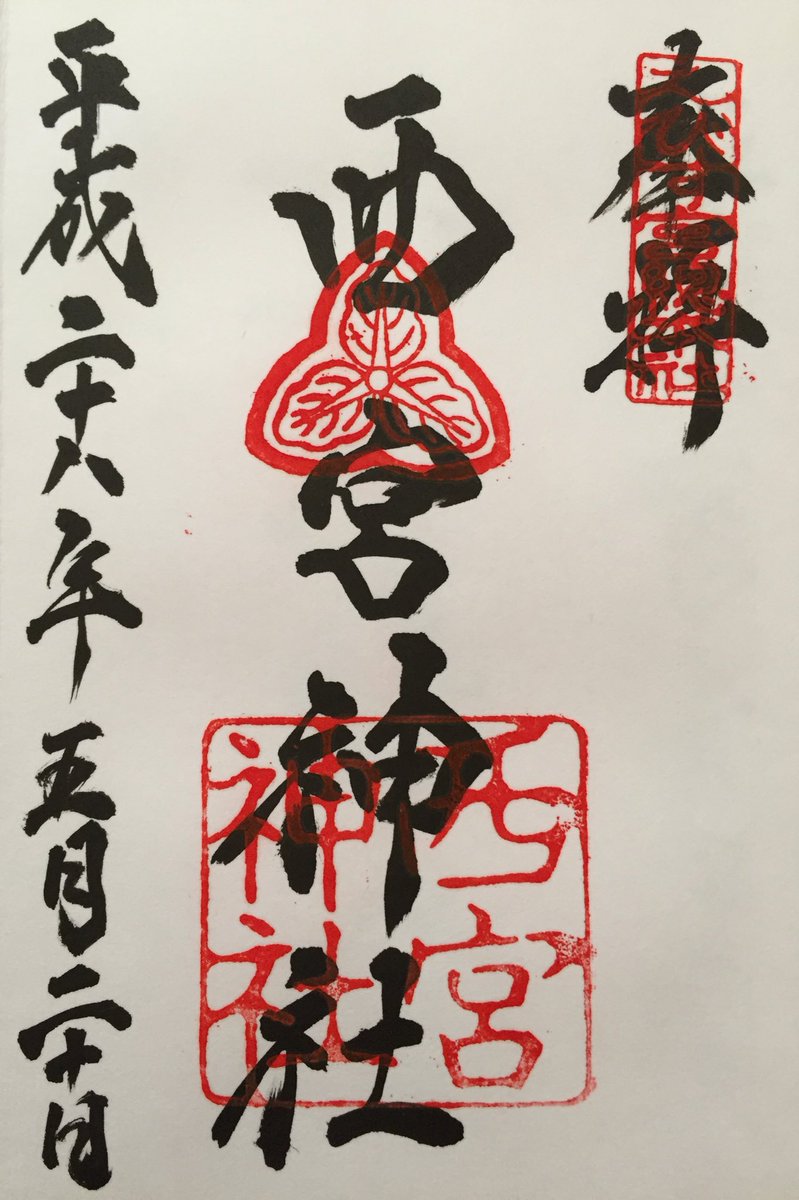 奉拝
西宮神社
西宮
神社
平成二十八年五月二十日